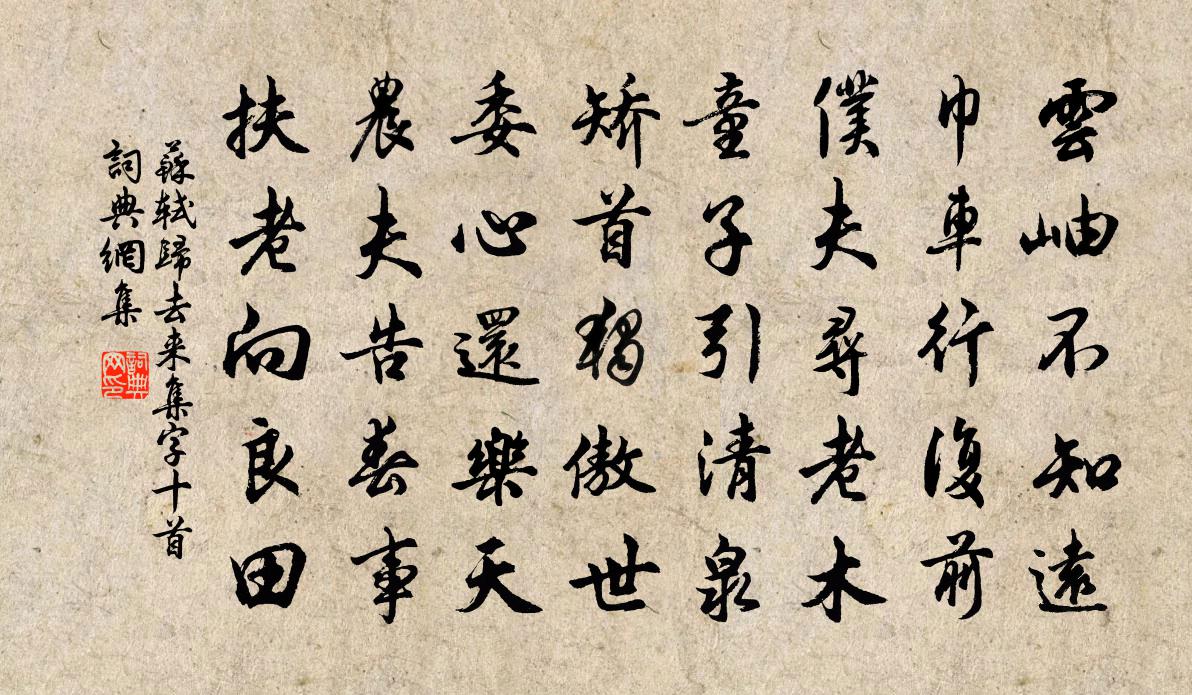 雲岫不知遠
巾車行復前
僕夫尋老木
童子引清泉
矯首獨傲世
委心還樂天
農夫告春事
扶老向良田
蘇軾歸去来集字十首
詞典網集
詞典网印